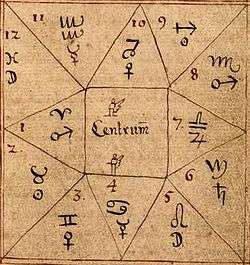 11 10 9
♒ ♑ ♐
12 ☿ ♀ ♏
♓ 8 ♂
☽
1 ♈ Centrum 7 ♎
♂ ♃
2
♉ 6
☉ 3 4 5 ♄
♊ ♋ ♌
♀ ☿ ☽